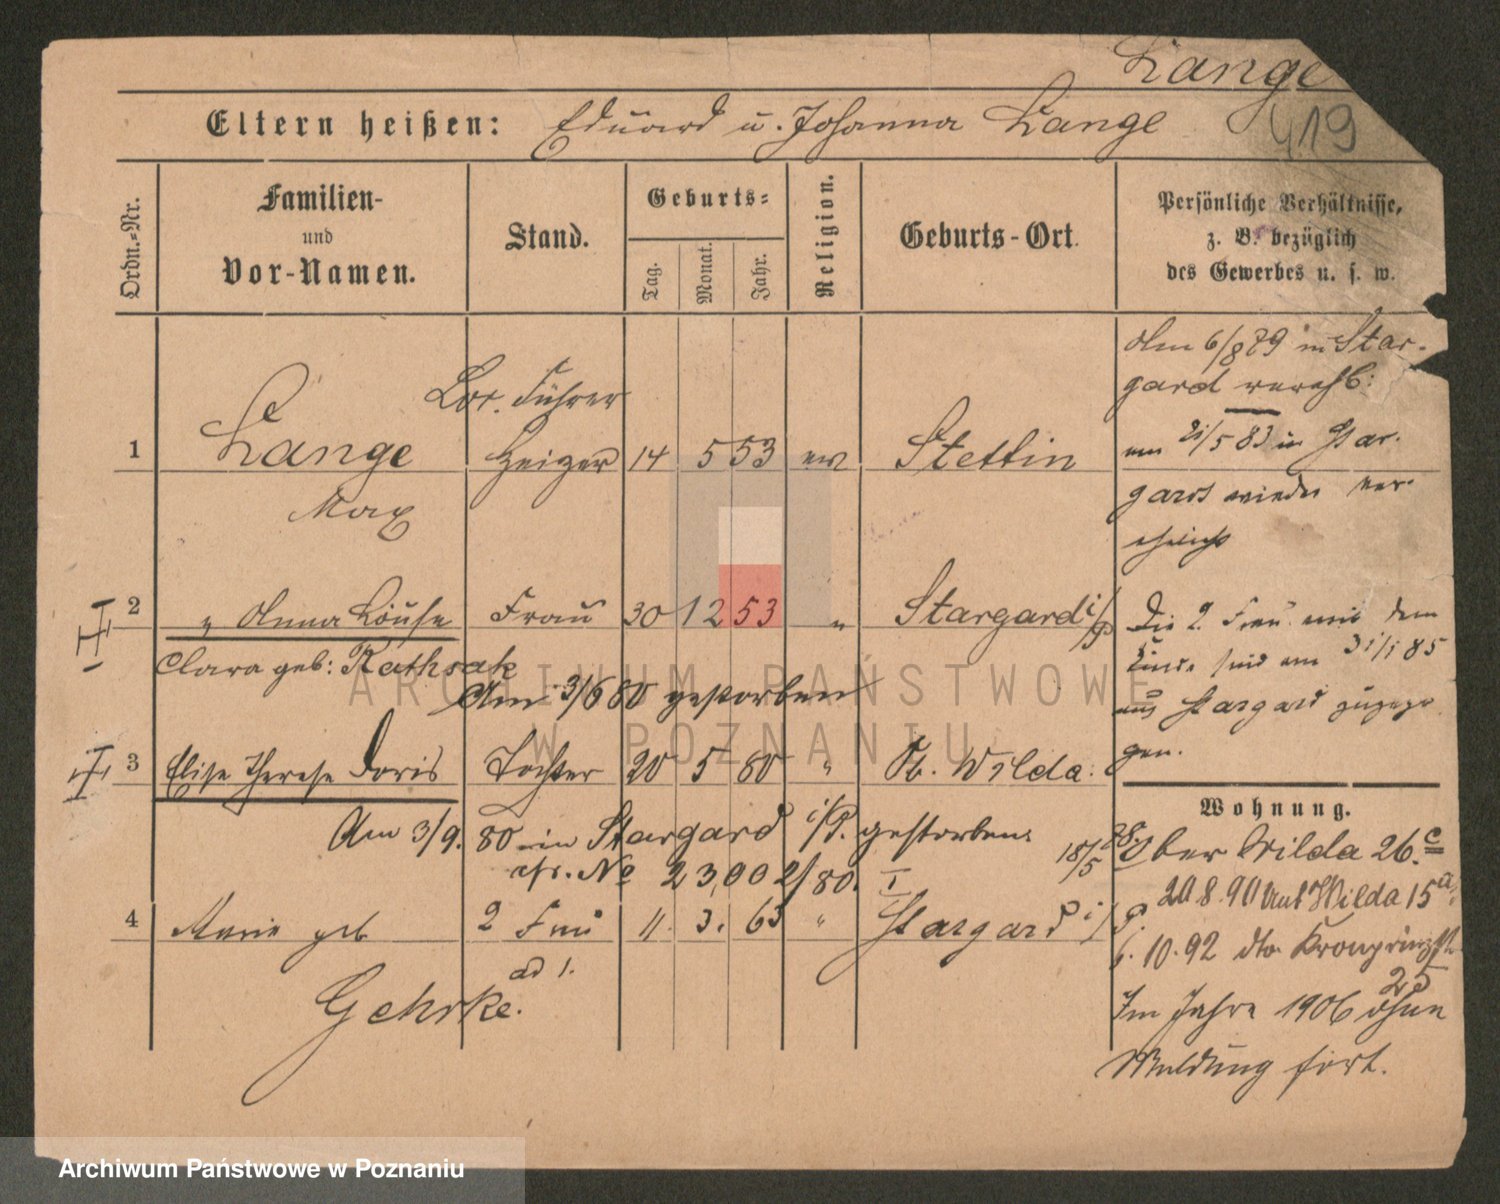 Lange
419
Eltern heißen: Eduard u. Johanna Lange
Ordn.-Nr.
Familien-
und
Vor-Namen.
Stand.
Geburts-
Tag.
Monat.
Jahr.
Religion.
Geburts-Ort.
Persönliche Verhältnisse,
z. B. bezüglich
des Gewerbes u. s. w.
1 Lange Max
Loc. Führer
Heizer 14 5 53 ev Stettin
Am 6/8 79 in Star-
gard verehl:
am 21/5 83 in Star-
gard wieder ver-
ehelicht
2 " Anna Louise Frau 30 12 53 " Stargard i/P
Clara geb: Rathsak
Am 3/6 80 gestorben
Die 2. Frau und dem
Kinde sind am 31/1 85
aus Stargard zugezo
gen.
3 Elise Therese Doris Tochter 20 5 80 " Ob. Wilda.
Am 3/9. 80 in Stargard i/P. gestorben.
cfr. No 23,002/80. I
4 Marie geb 2 Frau 11. 3. 63 " Stargard i/P.
ad 1.
Gehrke.
Wohnung.
18/5 85 Ober Wilda 26.c
20.8.90 Unt Wilda 15a,
6.10.92 dto Kronprinzstr
25
Im Jahre 1906 ohne
Meldung fort.
ARCHIWUM PAŃSTWOWE
W POZNANIU
Archiwum Państwowe w Poznaniu